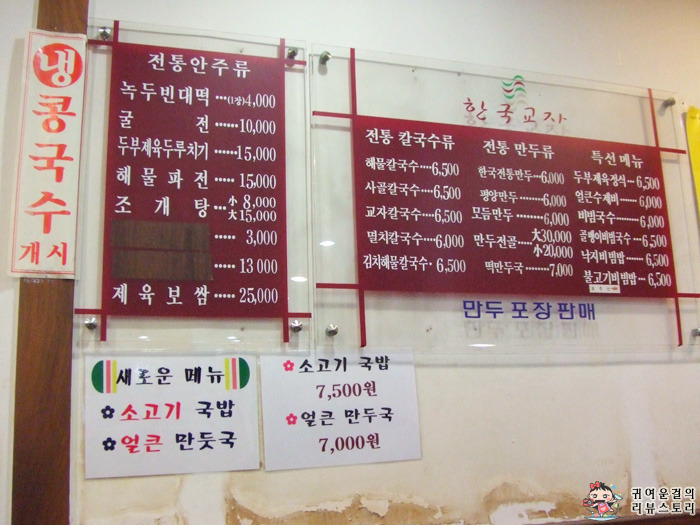 냉
콩
국
수
개시
전통안주류
녹두빈대떡 ...(1장)4,000
굴 전 ......10,000
두부제육두루치기 ...15,000
해물파전 ...... 15,000
조개탕 小 8,000
大 15,000
..... 3,000
..... 13 000
제육보쌈 ..... 25,000
한국교자
전통 칼국수류
해물칼국수....6,500
사골칼국수....6,500
교자칼국수....6,500
멸치칼국수....6,000
김치해물칼국수· 6,500
전통 만두류
한국전통만두..6,000
평양만두.......6,000
모듬만두.......6,000
만두전골 大30,000
小20,000
떡만두국.......7.000
특선 메뉴
두부제육정식..6,500
얼큰수제비.....6,000
비빔국수.......6,000
골뱅이비빔국수..6,500
낙지비빔밥....6,500
불고기비빔밥...6,500
만두 포장판매
새로운 메뉴
소고기 국밥
얼큰 만둣국
소고기 국밥
7,500원
얼큰 만두국
7,000원
귀여운걸의
리뷰스토리